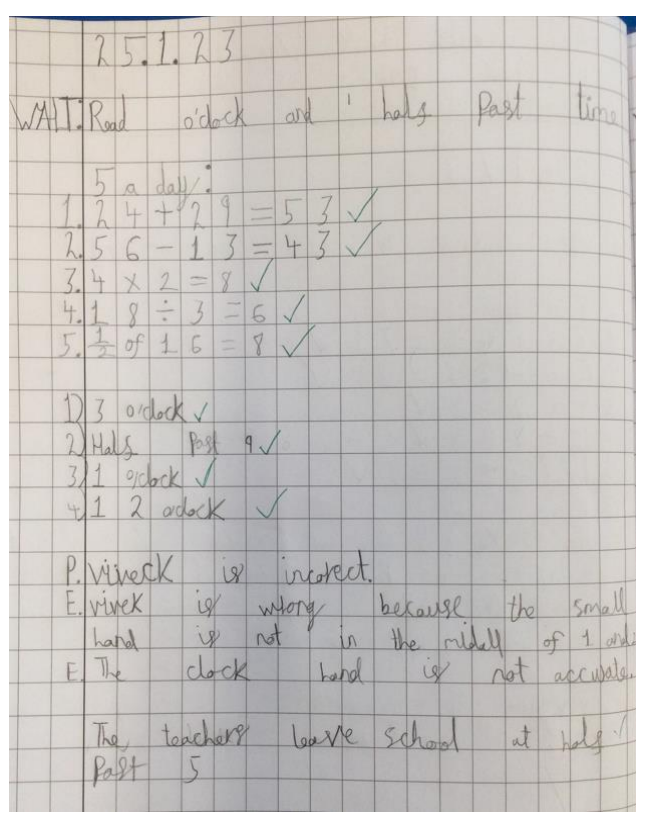 25.1.23
WALT: Read o'clock and half past time
5 a day:
1. 24 + 29 = 53 ✓
2. 56 - 13 = 43 ✓
3. 4 x 2 = 8 ✓
4. 18 ÷ 3 = 6 ✓
5. 1/2 of 16 = 8 ✓
1) 3 o'clock ✓
2) Half past 9 ✓
3) 1 o'clock ✓
4) 12 oclock ✓
P. viveck is incorect.
E. vivek is wrong because the small
hand is not in the midell of 1 and
E. The clock hand is not accurate.
The teachers leave school at half
past 5